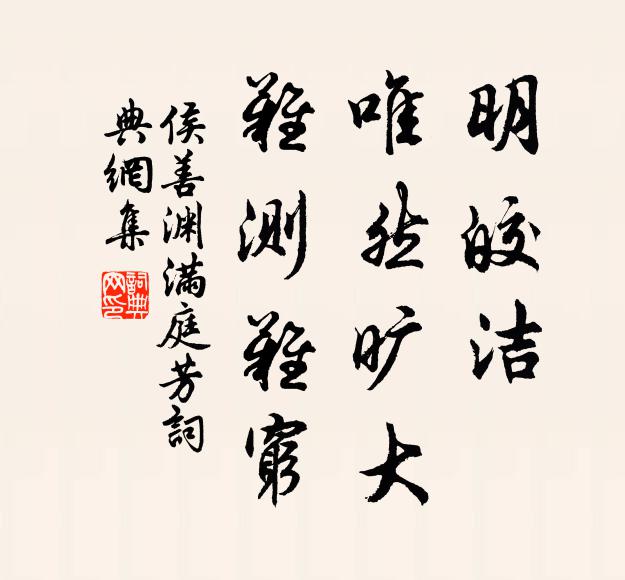 明皎洁
唯然旷大
难测难穷
侯善渊满庭芳詞
典網集
詞典网印